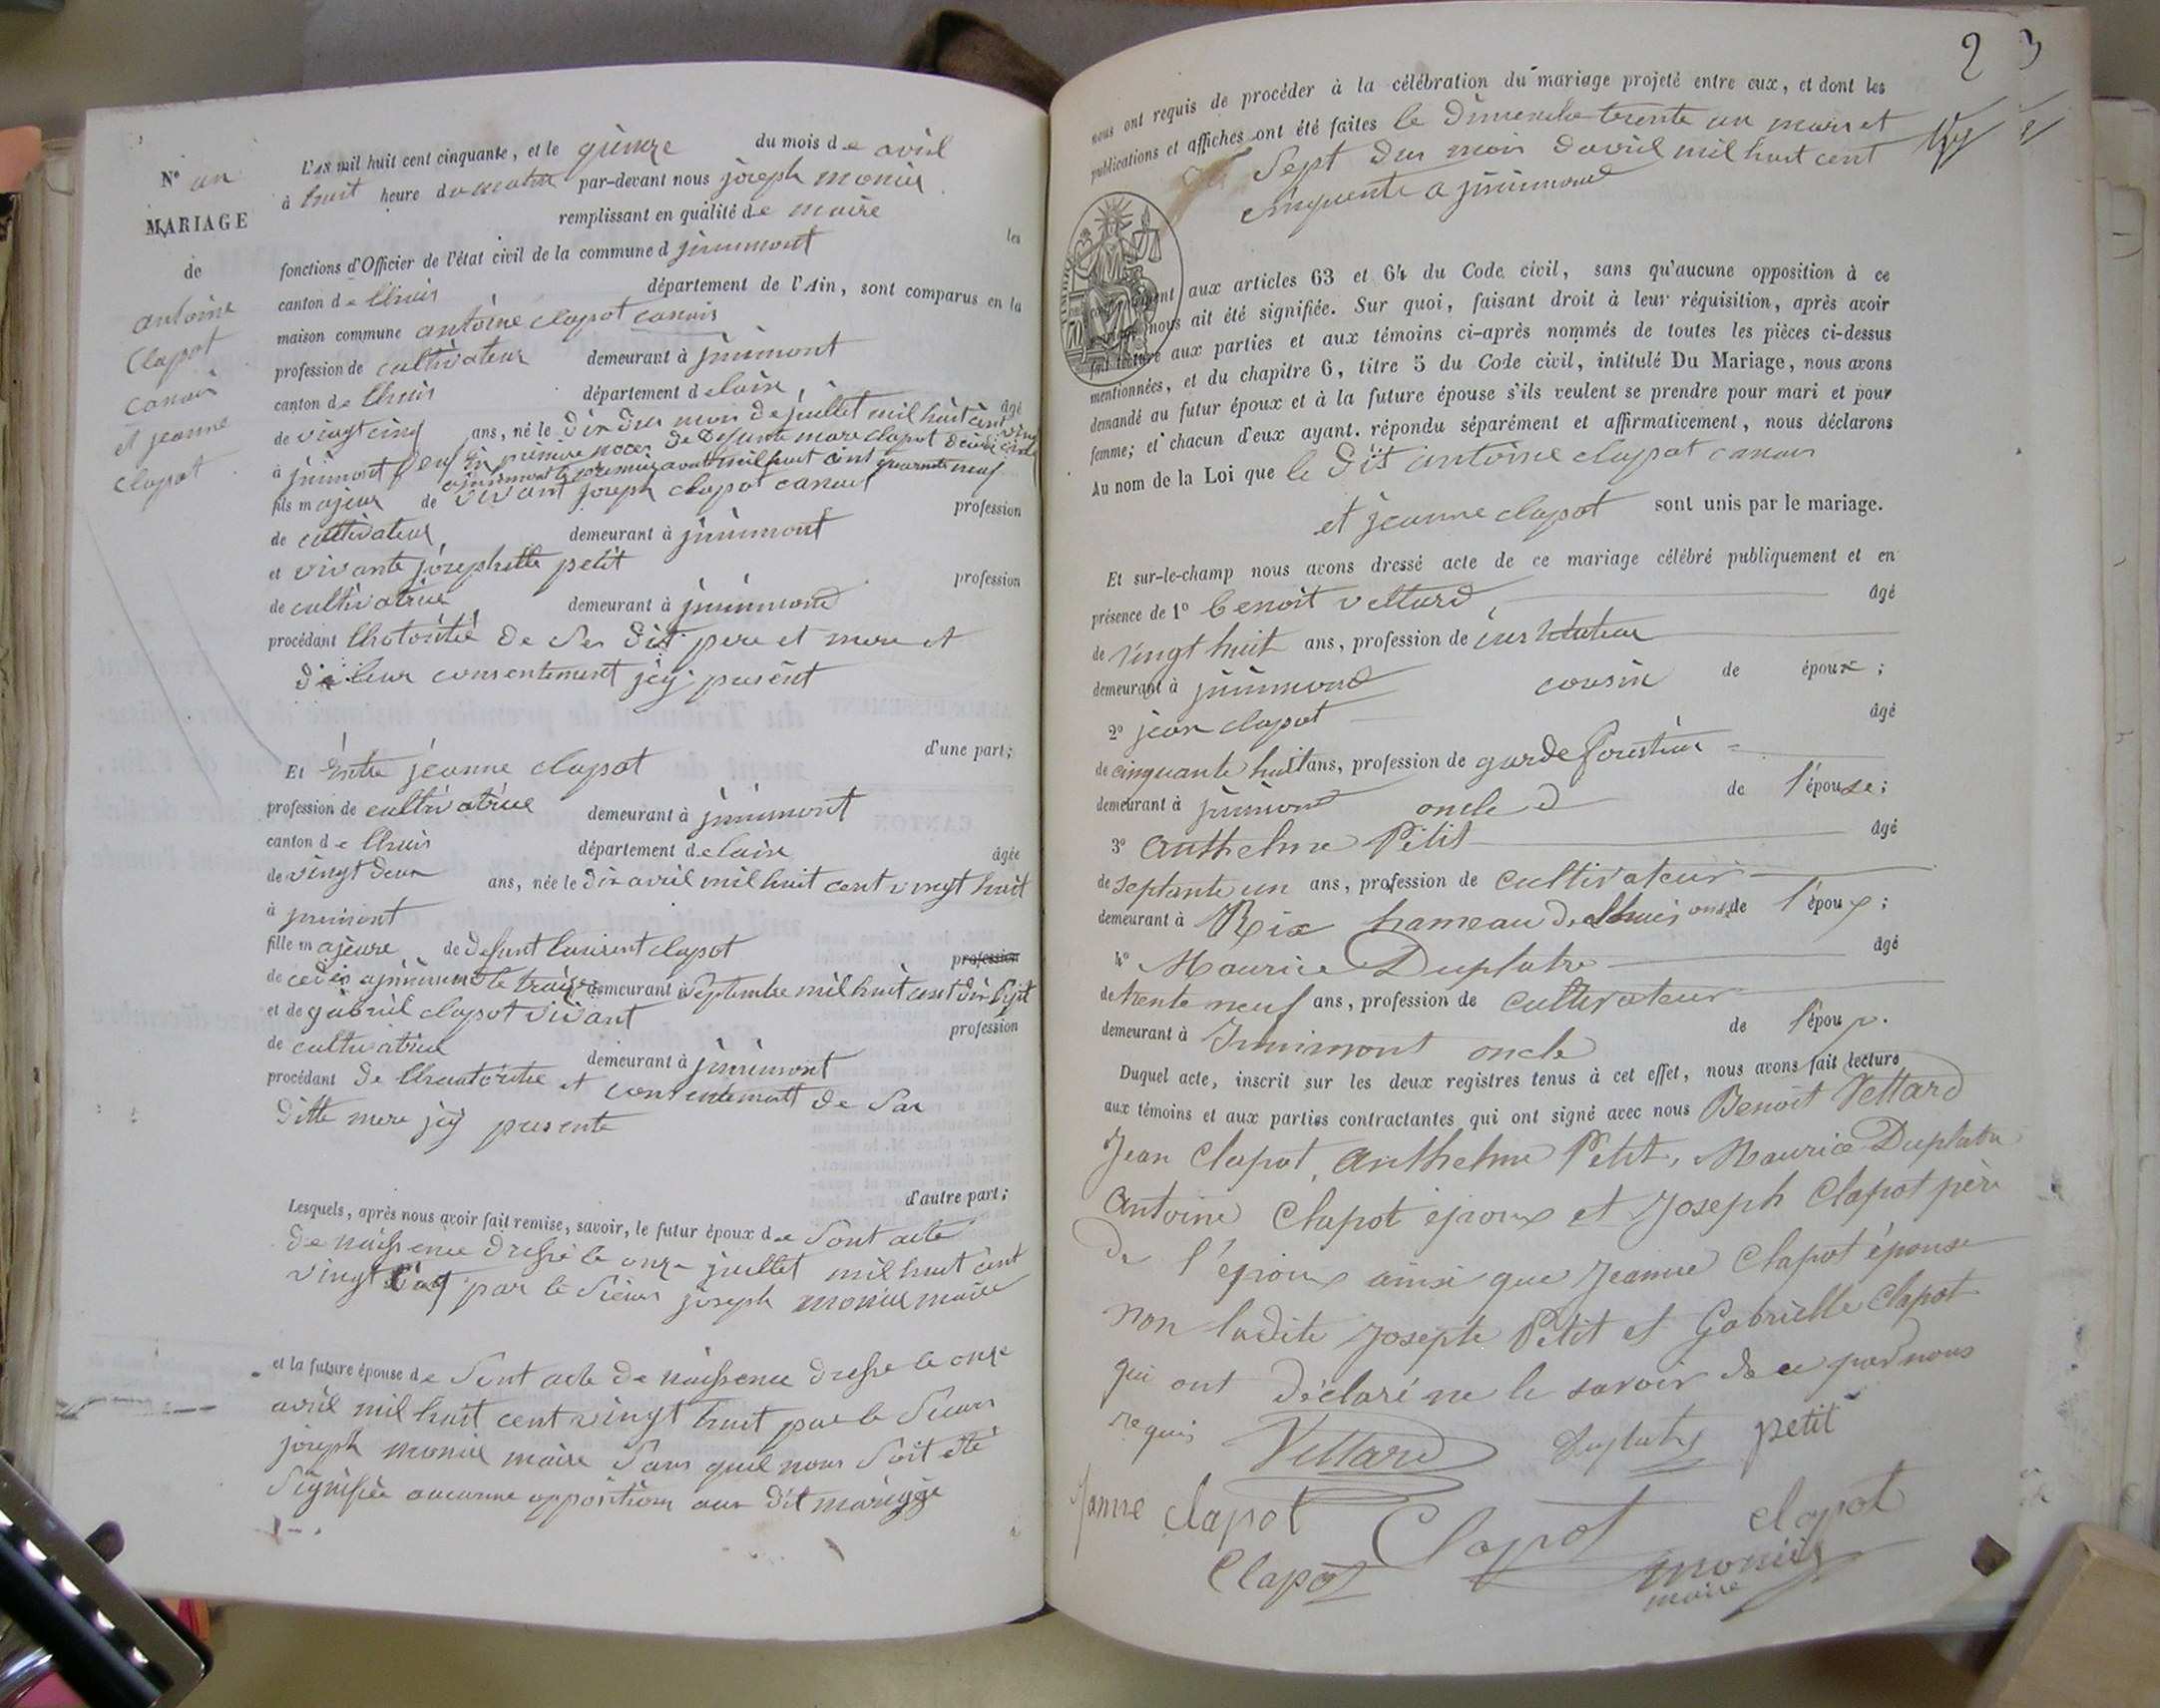 N° un
MARIAGE
de
antoine
Clapot
canois
et jeanne
clapot
L'AN mil huit cent cinquante, et le quinze du mois de avril
à huit heure du matin par-devant nous joseph monier
remplissant en qualité de maire les
fonctions d'Officier de l'état civil de la commune d jnnimont
canton de lhuis département de l'Ain, sont comparus en la
maison commune antoine clapot canois
profession de cultivateur demeurant à jnnimont
canton de lhuis département de lain, âgé
de vingt cinq ans, né le dix du mois de juillet mil huit cent vingt cinq
à jnnimont veuf en premiere noces de defunte marie clapot décédé
a jnnimont le premier avril mil huit cent quarente neuf
fils majeur de vivant joseph clapot canois profession
de cultivateur, demeurant à jnnimont
et vivante josephette petit profession
de cultivatrice demeurant à jnnimond
procédant lhotorité de ses dit pere et mere et
de leur consentement jcy present
d'une part;
Et Entre jeanne clapot
profession de cultivatrice demeurant à jnnimont
canton de lhuis département de lain âgée
de vingt deux ans, née le dix avril mil huit cent vingt huit
à jnnimont
fille majeure de defunt laurent clapot profession
de cedes a jnnimond le trois demeurant à Septembre mil huit cent
et de gabriel clapot vivant profession
de cultivatrice demeurant à jnnimont
procédant de lhautorite et consentement de sa
ditte mere jcy presente
d'autre part;
Lesquels, après nous avoir fait remise, savoir, le futur époux de sont acte
de naissence dressé le onze juillet mil huit cent
vingt cinq par le sieur joseph monier maire
et la future épouse de sont acte de naissence dressé le onze
avril mil huit cent vingt huit par le sieur
joseph monier maire sans quil nous soit été
signifiée aucunne opposition aux dit mariage
2 3
nous ont requis de procéder à la célébration du mariage projeté entre eux, et dont les
publications et affiches ont été faites le dimenche trente un mars et
sept du mois davril mil huit cent
cinquente a jnnimond
aux articles 63 et 64 du Code civil, sans qu'aucune opposition à ce
nous ait été signifiée. Sur quoi, faisant droit à leur réquisition, après avoir
fait lecture aux parties et aux témoins ci-après nommés de toutes les pièces ci-dessus
mentionnées, et du chapitre 6, titre 5 du Code civil, intitulé Du Mariage, nous avons
demandé au futur époux et à la future épouse s'ils veulent se prendre pour mari et pour
femme; et chacun d'eux ayant. répondu séparément et affirmativement, nous déclarons
Au nom de la Loi que le dit antoine clapot canois
et jeanne clapot sont unis par le mariage.
Et sur-le-champ nous avons dressé acte de ce mariage célébré publiquement et en
présence de 1° benoit vettard, âgé
de vingt huit ans, profession de instituteur
demeurant à jnnimond cousin de époux;
2° jean clapot âgé
de cinquante huit ans, profession de garde forestier
demeurant à jnnimond oncle d de l'épouse;
3° Anthelme Petit âgé
de septante un ans, profession de cultivateur
demeurant à Rix hameau de lhuis oncle de l'époux;
4° Maurice Duplatre âgé
de trente neuf ans, profession de cultivateur
demeurant à Innimont oncle de l'époux.
Duquel acte, inscrit sur les deux registres tenus à cet effet, nous avons fait lecture
aux témoins et aux parties contractantes qui ont signé avec nous Benoit Vettard
Jean Clapot, Anthelme Petit, Maurice Duplatre
Antoine Clapot époux et Joseph Clapot père
de l'époux ainsi que Jeanne Clapot épouse
non ladite Josephte Petit et Gabrielle Clapot
qui ont déclaré ne le savoir de ce par nous
requis Vettard Duplatre petit
Janne clapot Clapot clapot
Clapot monier
maire